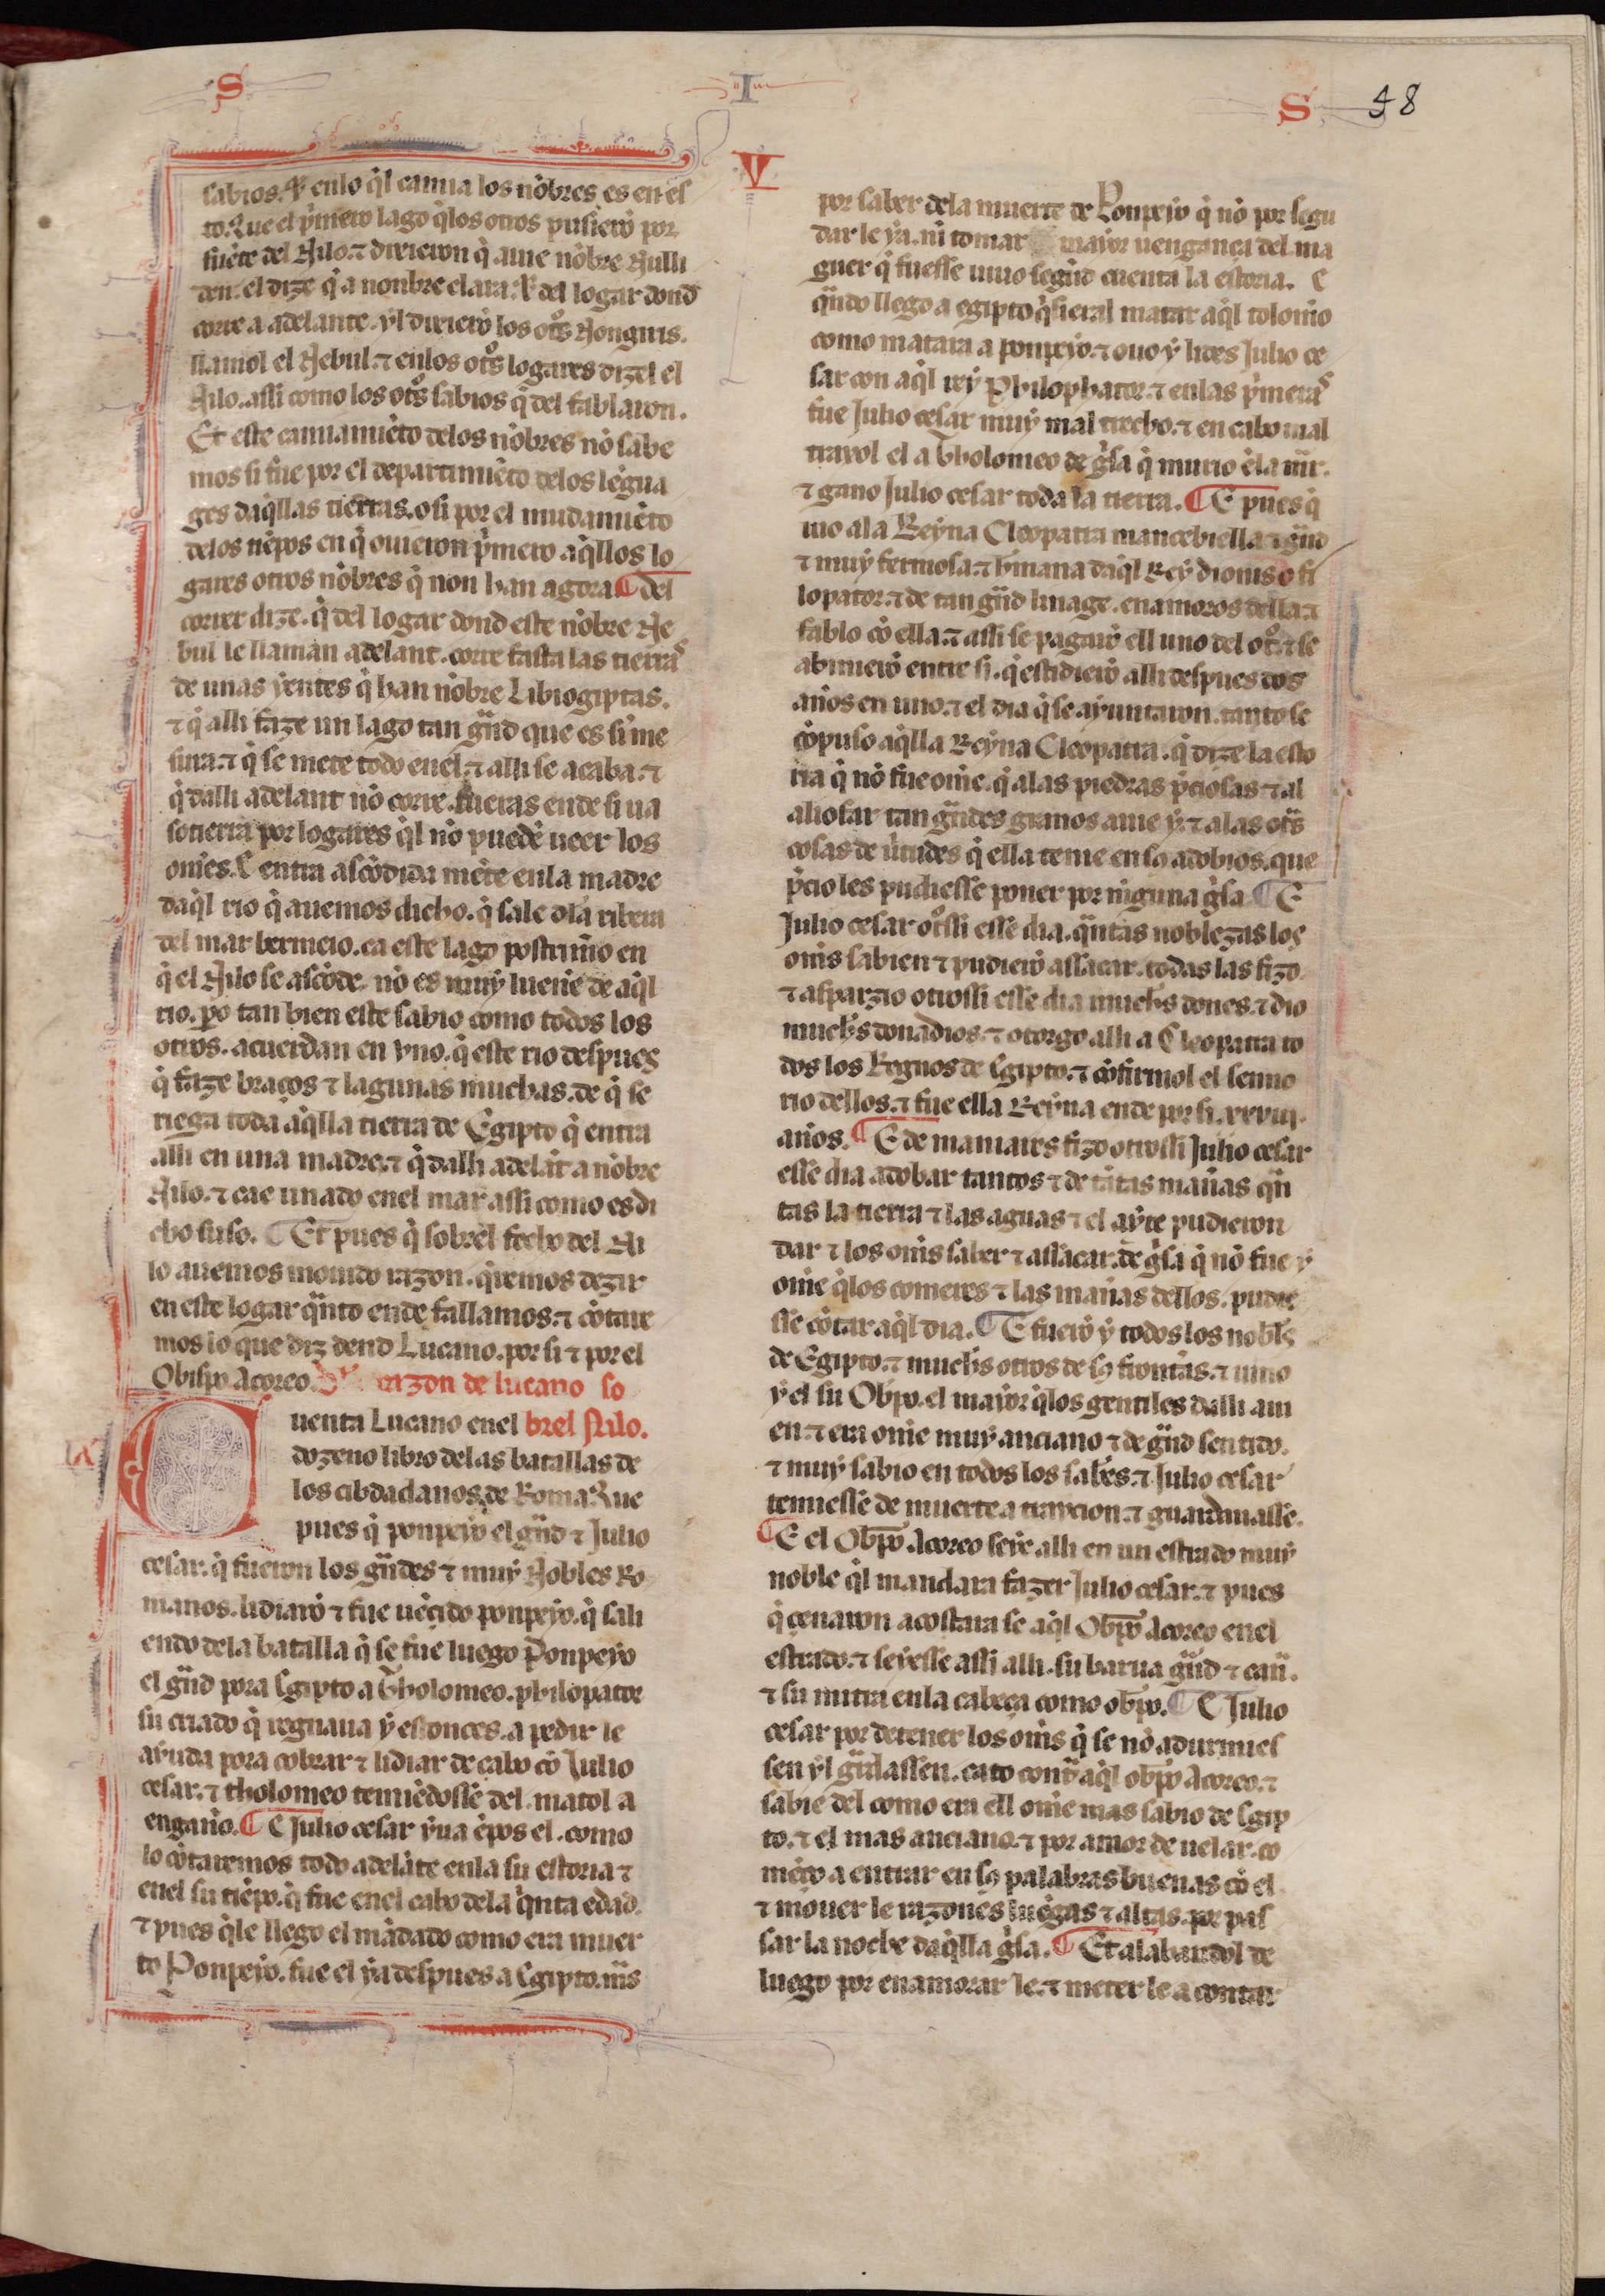 S I S 48
sabios. Et en lo q̃l camia los nõbres es en es
to. Que el p̃mero lago q̃ los otros pusierõ por
fuẽte del Nilo. ⁊ dixieron q̃ auie nõbre Nulli
den. el dize q̃ a nonbre clara. E del logar dond
corre a adelante. yl dixierõ los ot̃s Nonguis.
llamol el Nebul. ⁊ en los ot̃s logares dizel el
Nilo. assi como los ot̃s sabios q̃ del fablaron.
Et este camiamiẽto de los nõbres nõ sabe
mos si fue por el departimiẽto de los lẽgua
ges daq̃llas tierras. o si por el mudamiẽto
de los tiẽpos en q̃ ouieron p̃mero aq̃llos lo
gares otros nõbres q̃ non han agora ¶ del
correr dize. q̃ del logar dond este nõbre Ne
bul le llaman adelant. corre fasta las tierras
de unas yentes q̃ han nõbre Libiogiptas.
⁊ q̃ alli faze un lago tan gñd que es sĩ me
sura. ⁊ q̃ se mete todo en el. ⁊ alli se acaba. ⁊
q̃ dalli adelant nõ corre. fueras ende si ua
so tierra por logares q̃l nõ puedẽ ueer los
om̃es. E entra ascõdida mẽte en la madre
daq̃l rio q̃ auemos dicho. q̃ sale d̃la ribera
del mar bermeio. ca este lago postrim̃o en
q̃ el Nilo se ascõde. nõ es muy luene de aq̃l
rio. p̃o tan bien este sabio como todos los
otros. acuerdan en vno. q̃ este rio despues
q̃ faze braços ⁊ lagunas muchas. de q̃ se
riega toda aq̃lla tierra de Egipto q̃ entra
alli en una madre. ⁊ q̃ dalli adelãt a nõbre
Nilo. ⁊ cae unado en el mar assi como es di
cho suso. ¶ Et pues q̃ sobrel fecho del Ni
lo auemos mouido razon. q̃remos dezir
en este logar q̃nto ende fallamos. ⁊ cõtare
mos lo que diz dend Lucano. por si ⁊ por el
Obispo Acoreo. razon de lucano so
IX
C uenta Lucano en el brel Nilo.
dozeno libro de las batallas de
los cibdadanos de Roma. Que
pues q̃ ponpeyo el gñd ⁊ Julio
cesar. q̃ fueron los gñdes ⁊ muy Nobles Ro
manos. lidiarõ ⁊ fue uẽçido ponpeyo. q̃ sali
endo de la batalla q̃ se fue luego Ponpeyo
el gñd pora Egipto a Tholomeo. philopator
su criado q̃ regnaua y estonces. a pedir le
ayuda pora cobrar ⁊ lidiar de cabo cõ Julio
cesar. ⁊ tholomeo temiẽdosse del. matol a
engaño. ¶ E Julio cesar yua ẽpos el. como
lo cõtaremos todo adelãte en la su estoria ⁊
en el su tiẽpo. q̃ fue en el cabo de la q̃nta edad.
⁊ pues q̃ le llego el mãdado como era muer
to Ponpeyo. fue el ya despues a Egipto. m̃s
V
por saber de la muerte de Ponpeyo q̃ nõ por segu
dar le ya. ni tomar mayor uengança del. ma
guer q̃ fuesse uiuo segũd cuenta la estoria. E
q̃ndo llego a egipto q̃sieral matar aq̃l tolomeo
como matara a ponpeyo. ⁊ ouo y lides Julio ce
sar con aq̃l rey Philophator. ⁊ en las p̃meras
fue Julio cesar muy mal trecho. ⁊ en cabo mal
traxol el a Tholomeo de g̃sa q̃ murio ẽ la mar.
⁊ gano Julio cesar toda la tierra. ¶ E pues q̃
uio a la Reyna Cleopatra mancebiella ⁊ gñd
⁊ muy fermosa. ⁊ hm̃ana daq̃l Rey dioniso fi
lopator. ⁊ de tan gñd linage. enamoros della. ⁊
fablo cõ ella. ⁊ assi se pagarõ ell uno del ot̃. ⁊ se
abinierõ entre si. q̃ estidierõ alli despues dos
años en uno. ⁊ el dia q̃ se ayuntaron. tanto se
cõpuso aq̃lla Reyna Cleopatra. q̃ dize la esto
ria q̃ nõ fue om̃e. q̃ a las piedras p̃ciosas. ⁊ al
aliofar tan gñdes granos auie y. ⁊ a las ot̃s
cosas de ũtudes q̃ ella tenie en sꝯ adobios. que
p̃cio les pudiesse poner por ninguna g̃sa. ¶ E
Julio cesar ot̃ssi esse dia. q̃ntas noblezas los
om̃s sabien ⁊ pudierõ assacar. todas las fizo.
⁊ asparzio otrossi esse dia much̃s dones. ⁊ dio
much̃s donadios. ⁊ otorgo alli a Cleopatra to
dos los Regnos de Egipto. ⁊ cõfirmol el senno
rio dellos. ⁊ fue ella Reyna ende por si. xxviij.
años. ¶ E de maniares fizo otrossi Julio cesar
esse dia adobar tantos ⁊ de tãtas mañas q̃n
tas la tierra ⁊ las aguas ⁊ el ayre pudieron
dar ⁊ los om̃s saber ⁊ assacar. de g̃sa q̃ nõ fue y
om̃e q̃ los comeres ⁊ las mañas dellos. pudie
sse cõtar aq̃l dia. ¶ E fuerõ y todos los nobl̃s
de Egipto. ⁊ much̃s otros de sꝯ frontas. ⁊ uino
y el su Obpõ. el mayor q̃ los gentiles dalli aui
en. ⁊ era om̃e muy anciano ⁊ de gñd sentido.
⁊ muy sabio en todos los sab̃es. ⁊ Julio cesar
temiesse de muerte a traycion. ⁊ guardauasse.
¶ E el Obpõ Acoreo seye alli en un estrado muy
noble q̃l mandara fazer Julio cesar. ⁊ pues
q̃ çenaron acostara se aq̃l Obpõ Acoreo en el
estrado. ⁊ seyesse assi alli. su barua gñd ⁊ cañ.
⁊ su mitra en la cabeça como obpõ. ¶ E Julio
cesar por detener los om̃s q̃ se nõ adurmies
sen yl g̃ardassen. cato cont̃ aq̃l obpõ Acoreo. ⁊
sabie del como era ell om̃e mas sabio de Egip
to. ⁊ el mas anciano. ⁊ por amor de uelar. co
mẽço a entrar en sꝯ palabras buenas cõ el.
⁊ mouer le razones luẽgas ⁊ altas. por pas
sar la noche daq̃lla g̃sa. ¶ Et alabandol de
luego por enamorar le. ⁊ meter le a contar